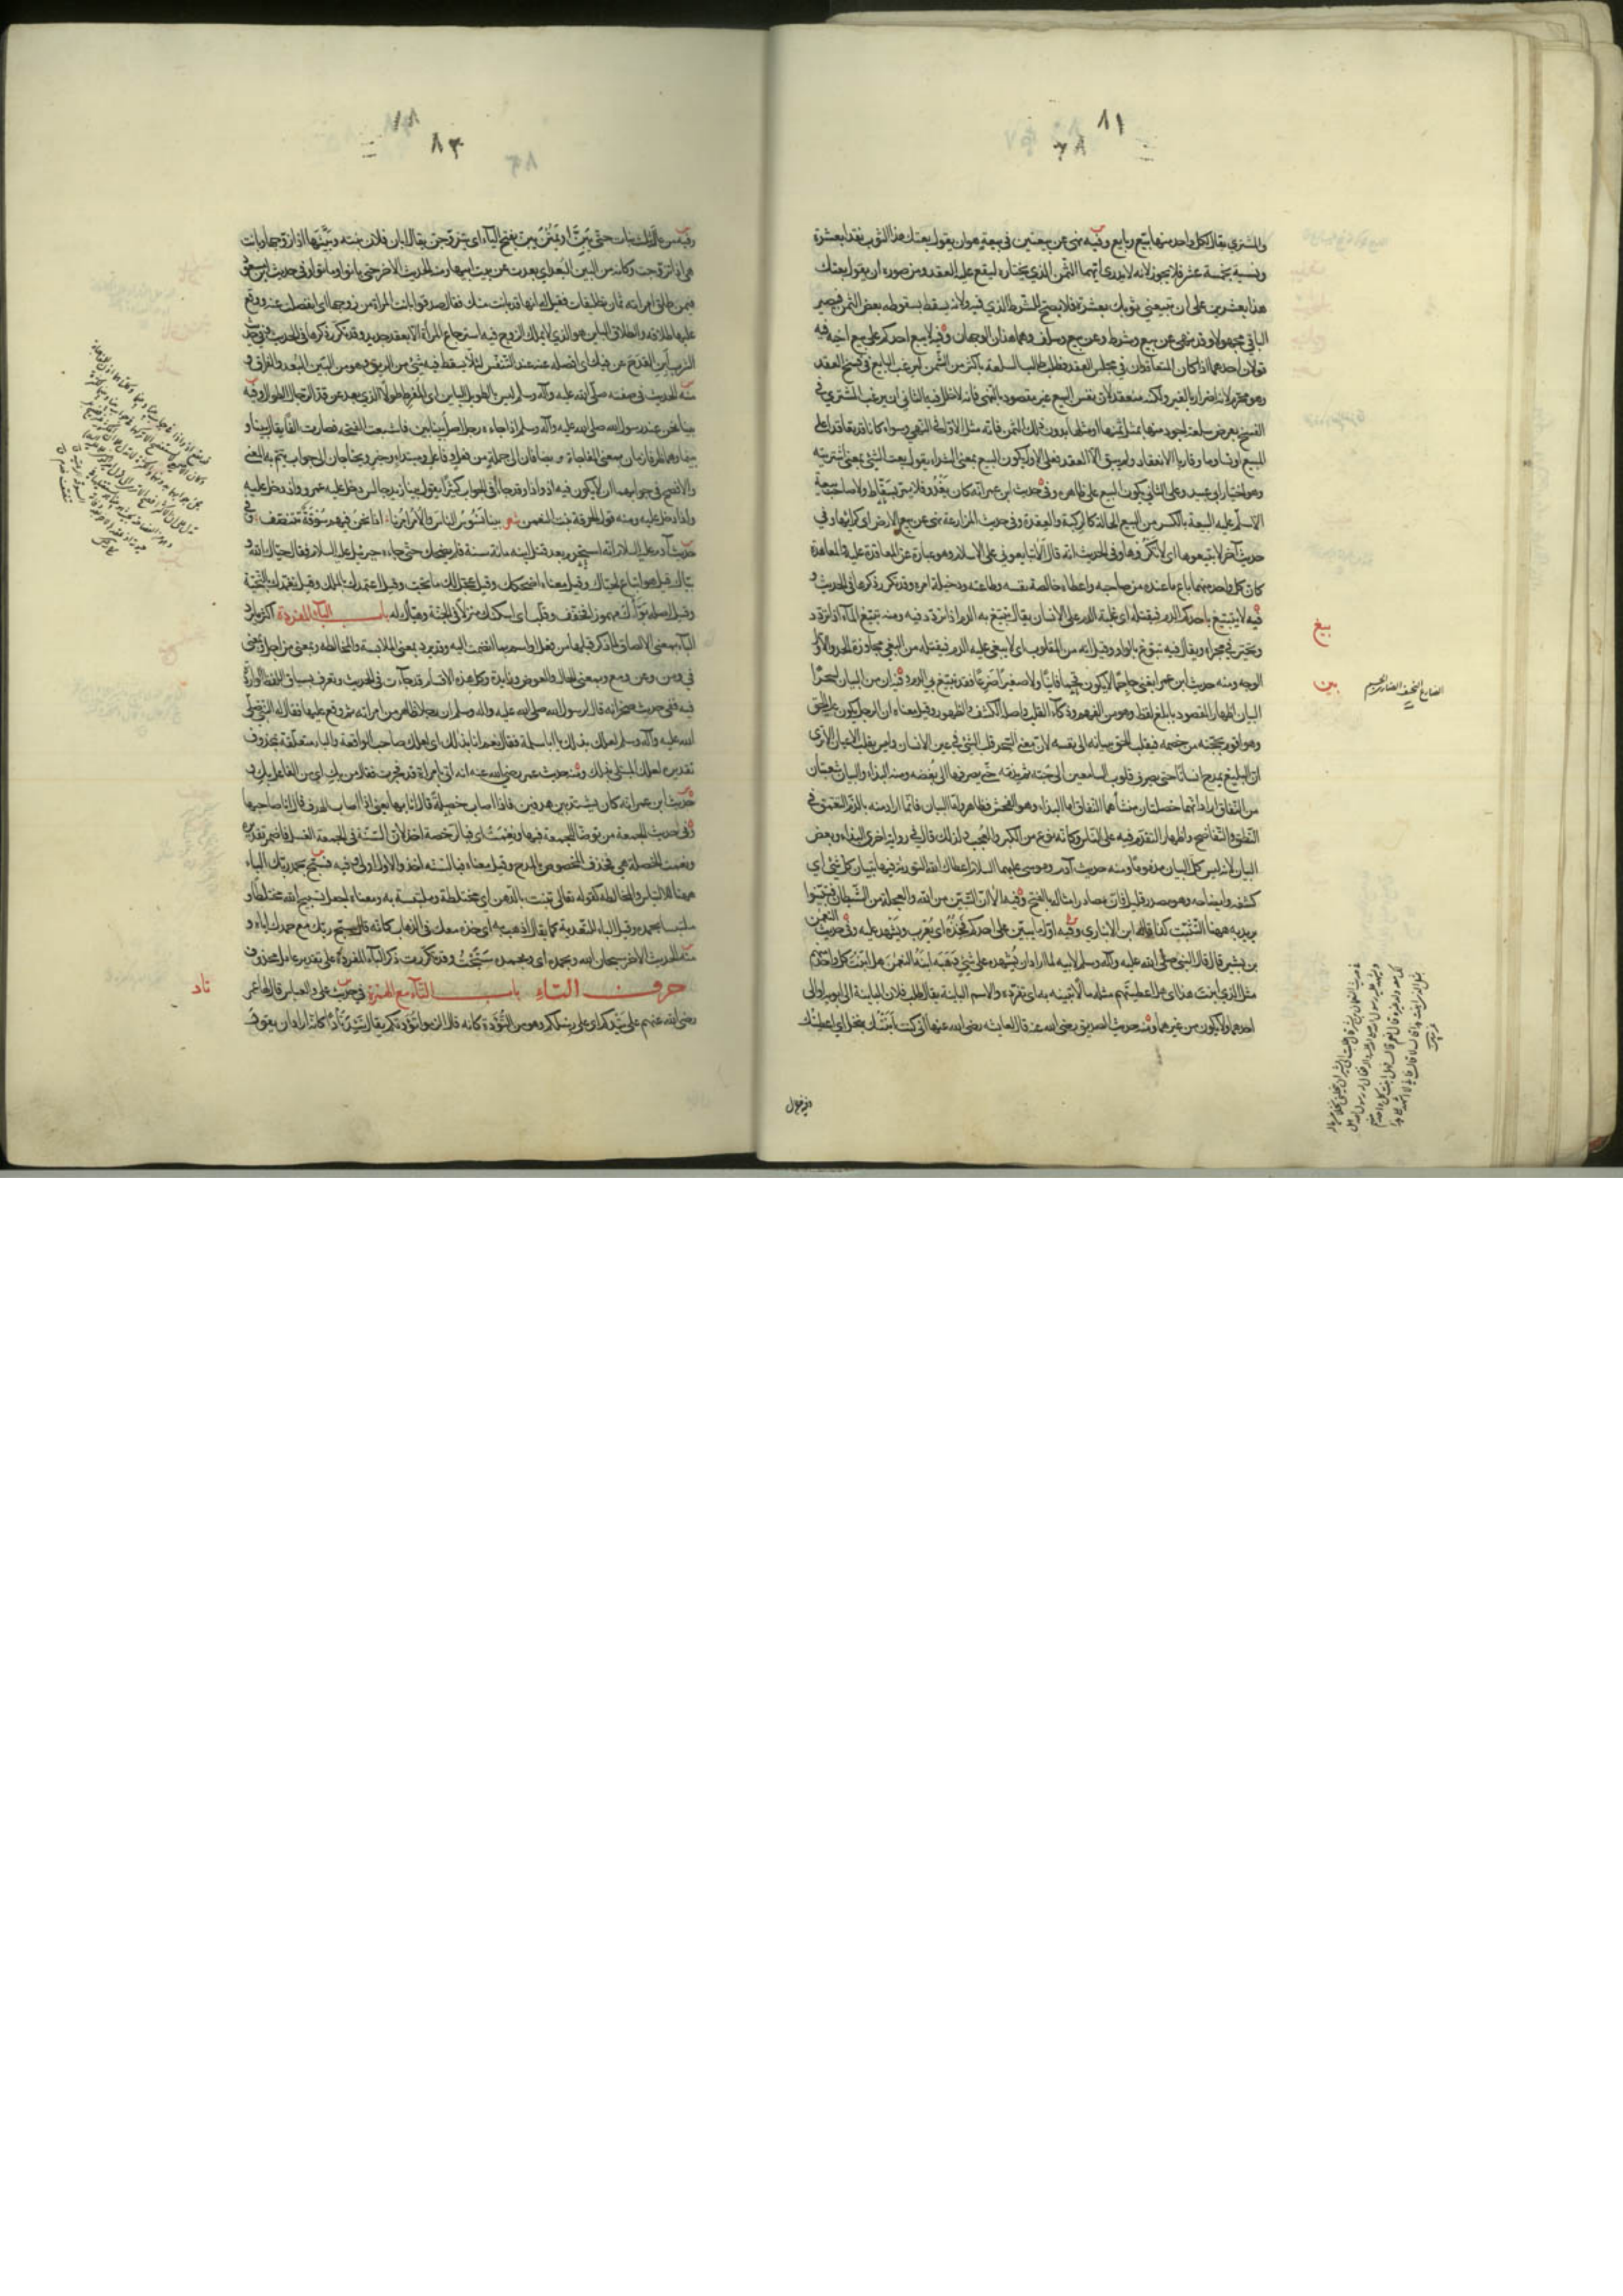 ٨١
٨٢
والمشتري يقال لكل واحد منهما بيع وبايع وفيه نهى عن بيعتين في بيعة هو ان يقول بعتك هذا الثوب نقدا بعشرة
ونسية بخمسة عشر فلا يجوز لانه لا يدري ايهما الثمن الذي يختاره ليقع عليه العقد ومن صوره ان يقول بعتك
هذا بعشرين على ان تبيعني ثوبك بعشرة فلا يصح للشرط الذي فيه ولانه يسقط بسقوطه بعض الثمن فيصير
الباقي مجهولا وقد نهى عن بيع وشرط وعن بيع وسلف وهما هذان الوجهان وفيه لا يبيع احدكم على بيع اخيه فيه
قولان احدهما اذا كان المتعاقدان في مجلس العقد وطلب طالب السلعة باكثر من الثمن ليرغب البايع في فسخ العقد
وهو محرم لانه اضرار بالغير ولكنه منعقد لان نفس البيع غير مقصود بالنهي فانه لا خلل فيه الثاني ان يرغب المشتري في
الفسخ بعرض سلعة اجود منها بمثل ثمنها او مثلها بدون ذلك الثمن فانه مثل الاول في النهي وسواء كانا قد تعاقدا على
المبيع او تساوما وقاربا الانعقاد ولم يبق الا العقد فعلى الاول يكون البيع بمعنى الشراء يقول بعت الشيء بمعنى اشتريته
وهو اختيار ابي عبيد وعلى الثاني يكون البيع على ظاهره وفي حديث ابن عمر انه كان يغدو فلا يمر بسقاط ولا صاحب بيعة
الا سلم عليه البيعة بالكسر من البيع الحالة كالركبة والقعدة وفي حديث المزارعة نهى عن بيع الارض اي كرائها وفي
حديث آخر لا تبيعوها اي لا تكروها وفي الحديث انه قال ألا تبايعوني على الاسلام هو عبارة عن المعاقدة عليه والمعاهدة
كان كل واحد منهما باع ما عنده من صاحبه واعطاه خالصة نفسه وطاعته ودخيلة امره وقد تكرر ذكرها في الحديث و
فيه لا يتبيغ باحدكم الدم فيقتله اي غلبة الدم على الانسان يقال تبيغ به الدم اذا تردد فيه ومنه تبيغ الماء اذا تردد
وتحير في مجراه ويقال فيه تبوغ بالواو وقيل انه من المقلوب اي لا يبغي عليه الدم فيقتله من البغي مجاوزة الحد والاول
الوجه ومنه حديث ابن عمر ابغني خادما لا يكون قحما فانيا ولا صغيرا ضرعا فقد تبيغ بي الدم وفيه ان من البيان لسحرا
البيان اظهار المقصود بابلغ لفظ وهو من الفهم وذكاء القلب واصله الكشف والظهور وقيل معناه ان الرجل يكون عليه الحق
وهو اقوم بحجته من خصمه فيقلب الحق ببيانه الى نفسه لان معنى السحر قلب الشيء في عين الانسان وليس بقلب الاعيان الا ترى
ان البليغ يمدح انسانا حتى يصرف قلوب السامعين الى حبه ثم يذمه حتى يصرفها الى بغضه ومنه البذاء والبيان شعبتان
من النفاق اراد انهما خصلتان منشأهما النفاق اما البذاء وهو الفحش فظاهر واما البيان فانما اراد منه بالذم التعمق في
النطق والتفاصح واظهار التقدم فيه على الناس وكانه نوع من الكبر والعجب ولذلك قال في رواية اخرى البذاء وبعض
البيان لانه ليس كل البيان مذموما ومنه حديث آدم وموسى عليهما السلام اعطاك الله التورية فيها تبيان كل شيء اي
كشفه وايضاحه وهو مصدر قليل فان مصادر امثاله بالفتح وفيه الا ان التبين من الله والعجلة من الشيطان فتبينوا
يريد به ههنا التثبت كذا قاله ابن الانباري وفيه اول ما يبين على احدكم فخذه اي يعرب ويشهد عليه وفي حديث النعمن
بن بشير قال قال النبي صلى الله عليه وآله وسلم لابيه لما اراد ان يشهده على شيء وهبه ابنه النعمن هل ابنت كل واحد منهم
مثل الذي ابنت هذا اي هل اعطيتهم مثله مالا تبينه به اي تفرده والاسم البائنة يقال طلب فلان البائنة الى ابويه او الى
احدهما ولا يكون من غيرهما ومنه حديث الصديق رضي الله عنه قال لعايشه رضي الله عنها اني كنت ابنتك بنحل اي اعطيتك
بيغ
بين
وفيه من عال
٨١
٨٣
وفيه من عال ثلث بنات حتى يبن او يمتن يبن بفتح الياء اي يتزوجن يقال ابان فلان بنته وبينها اذا زوجها وبانت
هي اذا تزوجت وكانه من البين البعد اي بعدت عن بيت ابيها ومنه الحديث الاخر حتى بانوا او ماتوا وفي حديث ابن مسعود
فيمن طلق امراته ثمان تطليقات وقيل له انها قد بانت منك فقال صدقوا بانت المراة من زوجها اي انفصلت عنه ووقع
عليها طلاقه والطلاق البائن هو الذي لا يملك الزوج فيه استرجاع المرأة الا بعقد جديد وقد تكرر ذكرها في الحديث وفي حديث
الشرب ابن القدح عن فيك اي افصله عنه عند التنفس لئلا يسقط فيه شيء من الريق وهو من البين البعد والفراق و
منه الحديث في صفته صلى الله عليه وآله وسلم ليس بالطويل البائن اي المفرط طولا الذي بعد عن قد الرجال الطوال وفيه
بينا نحن عند رسول الله صلى الله عليه وآله وسلم اذ جاءه رجل اصل بينا بين فاشبعت الفتحة فصارت الفا يقال بينا و
بينما وهما ظرفا زمان بمعنى المفاجاة ويضافان الى جملة من فعل وفاعل ومبتداء وخبر ويحتاجان الى جواب يتم به المعنى
والافصح في جوابهما ان لا يكون فيه اذ واذا وقد جاآ في الجواب كثيرا يقول بينا زيد جالس دخل عليه عمرو واذ دخل عليه
واذا دخل عليه ومنه قول الحرقة بنت النعمن شعر بينا نسوس الناس والامر امرنا اذا نحن فيهم سوقة نتنصف وفي
حديث آدم عليه السلام انه استحرم بعد قتل ابنه مائة سنة فلم يضحك حتى جاءه جبريل عليه السلام فقال حياك الله و
بياك قيل هو اتباع لحياك وقيل معناه اضحكك وقيل عجل لك ما تحب وقيل اعتمدك بالملك وقيل تغمدك بالتحية
وقيل اصله بوأك مهموز فخفف وقلب اي اسكنك منزلا في الجنة وهياك له باب الباء المفردة اكثر ما يرد
الباء بمعنى الالصاق لما ذكر قبلها من فعل او اسم بما انضمت اليه وقد يرد بمعنى الملابسة والمخالطه وبمعنى من اجل وبمعنى
في ومن وعن ومع وبمعنى الحال والعوض وزايدة وكل هذه الاقسام قد جاءت في الحديث وتعرف بسياق اللفظ الواردة
فيه ففي حديث صخر انه قال لرسول الله صلى الله عليه وآله وسلم ان رجلا ظاهر من امراته ثم وقع عليها فقال له النبي صلى
الله عليه وآله وسلم لعلك بذلك يا ابا سلمة فقال نعم انا بذلك اي لعلك صاحب الواقعة والباء متعلقة بمحذوف
تقديره لعلك المبتلى بذلك ومنه حديث عمر رضي الله عنه انه اتي بامراة قد فجرت فقال من بك اي من الفاعل بك وفي
حديث ابن عمر انه كان يشتد بين هدفين فاذا اصاب خصلة قال انا بها يعني اذا اصاب الهدف قال انا صاحبها
وفي حديث الجمعة من توضأ للجمعة فبها ونعمت اي فبالرخصة اخذ لان السنة في الجمعة الغسل فاضمر تقديره
ونعمت الخصلة هي فحذف المخصوص بالمدح وقيل معناه فبالسنه اخذ والاول اولى وفيه فسبح بحمد ربك الباء
ههنا للالتباس والمخالطه كقوله تعالى تنبت بالدهن اي مختلطة وملتبسة به ومعناه اجعل تسبيح الله مختلطا و
ملتبسا بحمده وقيل الباء للتعدية كما يقال اذهب به اي خذه معك في الذهاب كانه قال سبح ربك مع حمدك اياه و
منه الحديث الاخر سبحان الله وبحمده اي وبحمده سبحت وقد تكررت ذكر الباء المفردة على تقدير عامل محذوف
حرف التاء باب التاء مع الهمزة في حديث علي والعباس قال لهما عمر
رضي الله عنهم على تيدكم اي على رسلكم وهو من التؤدة كانه قال الزموا تؤدتكم يقال تئد تأدا كانه اراد ان يقول
تاد